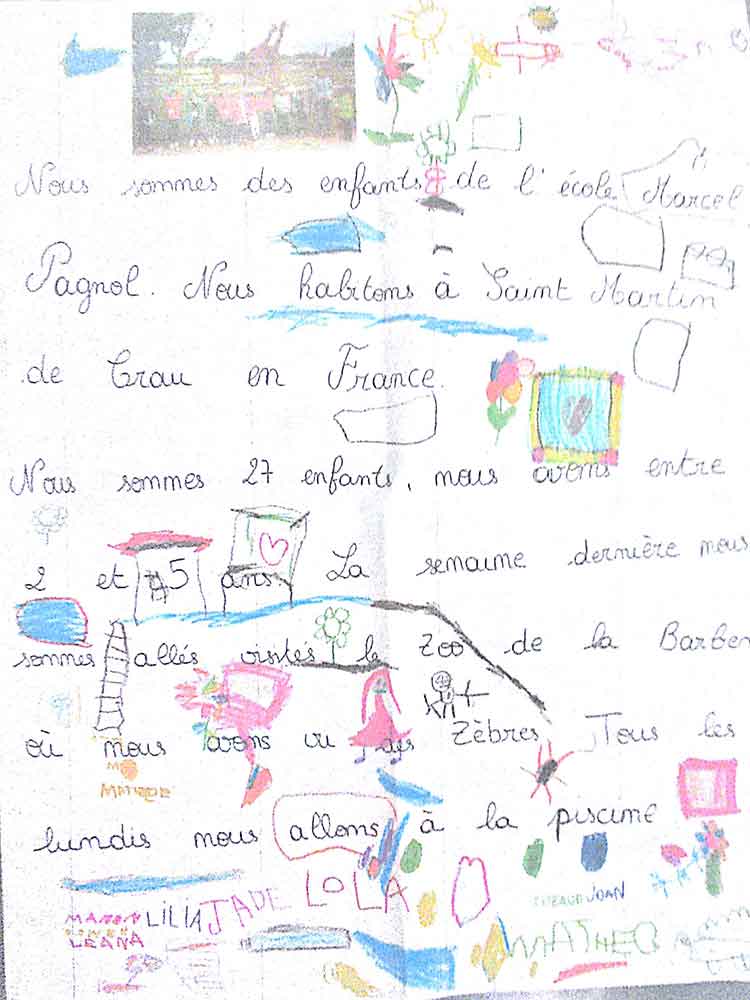 Nous sommes des enfants de l'école Marcel
Pagnol. Nous habitons à Saint Martin
de Crau en France.
Nous sommes 27 enfants, nous avons entre
2 et 5 ans. La semaine dernière nous
sommes allés visités le zoo de la Barben
où nous avons vu des Zèbres. Tous les
lundis nous allons à la piscine
MANON LILIA JADE LOLA JOAN
LEANA MATHEO